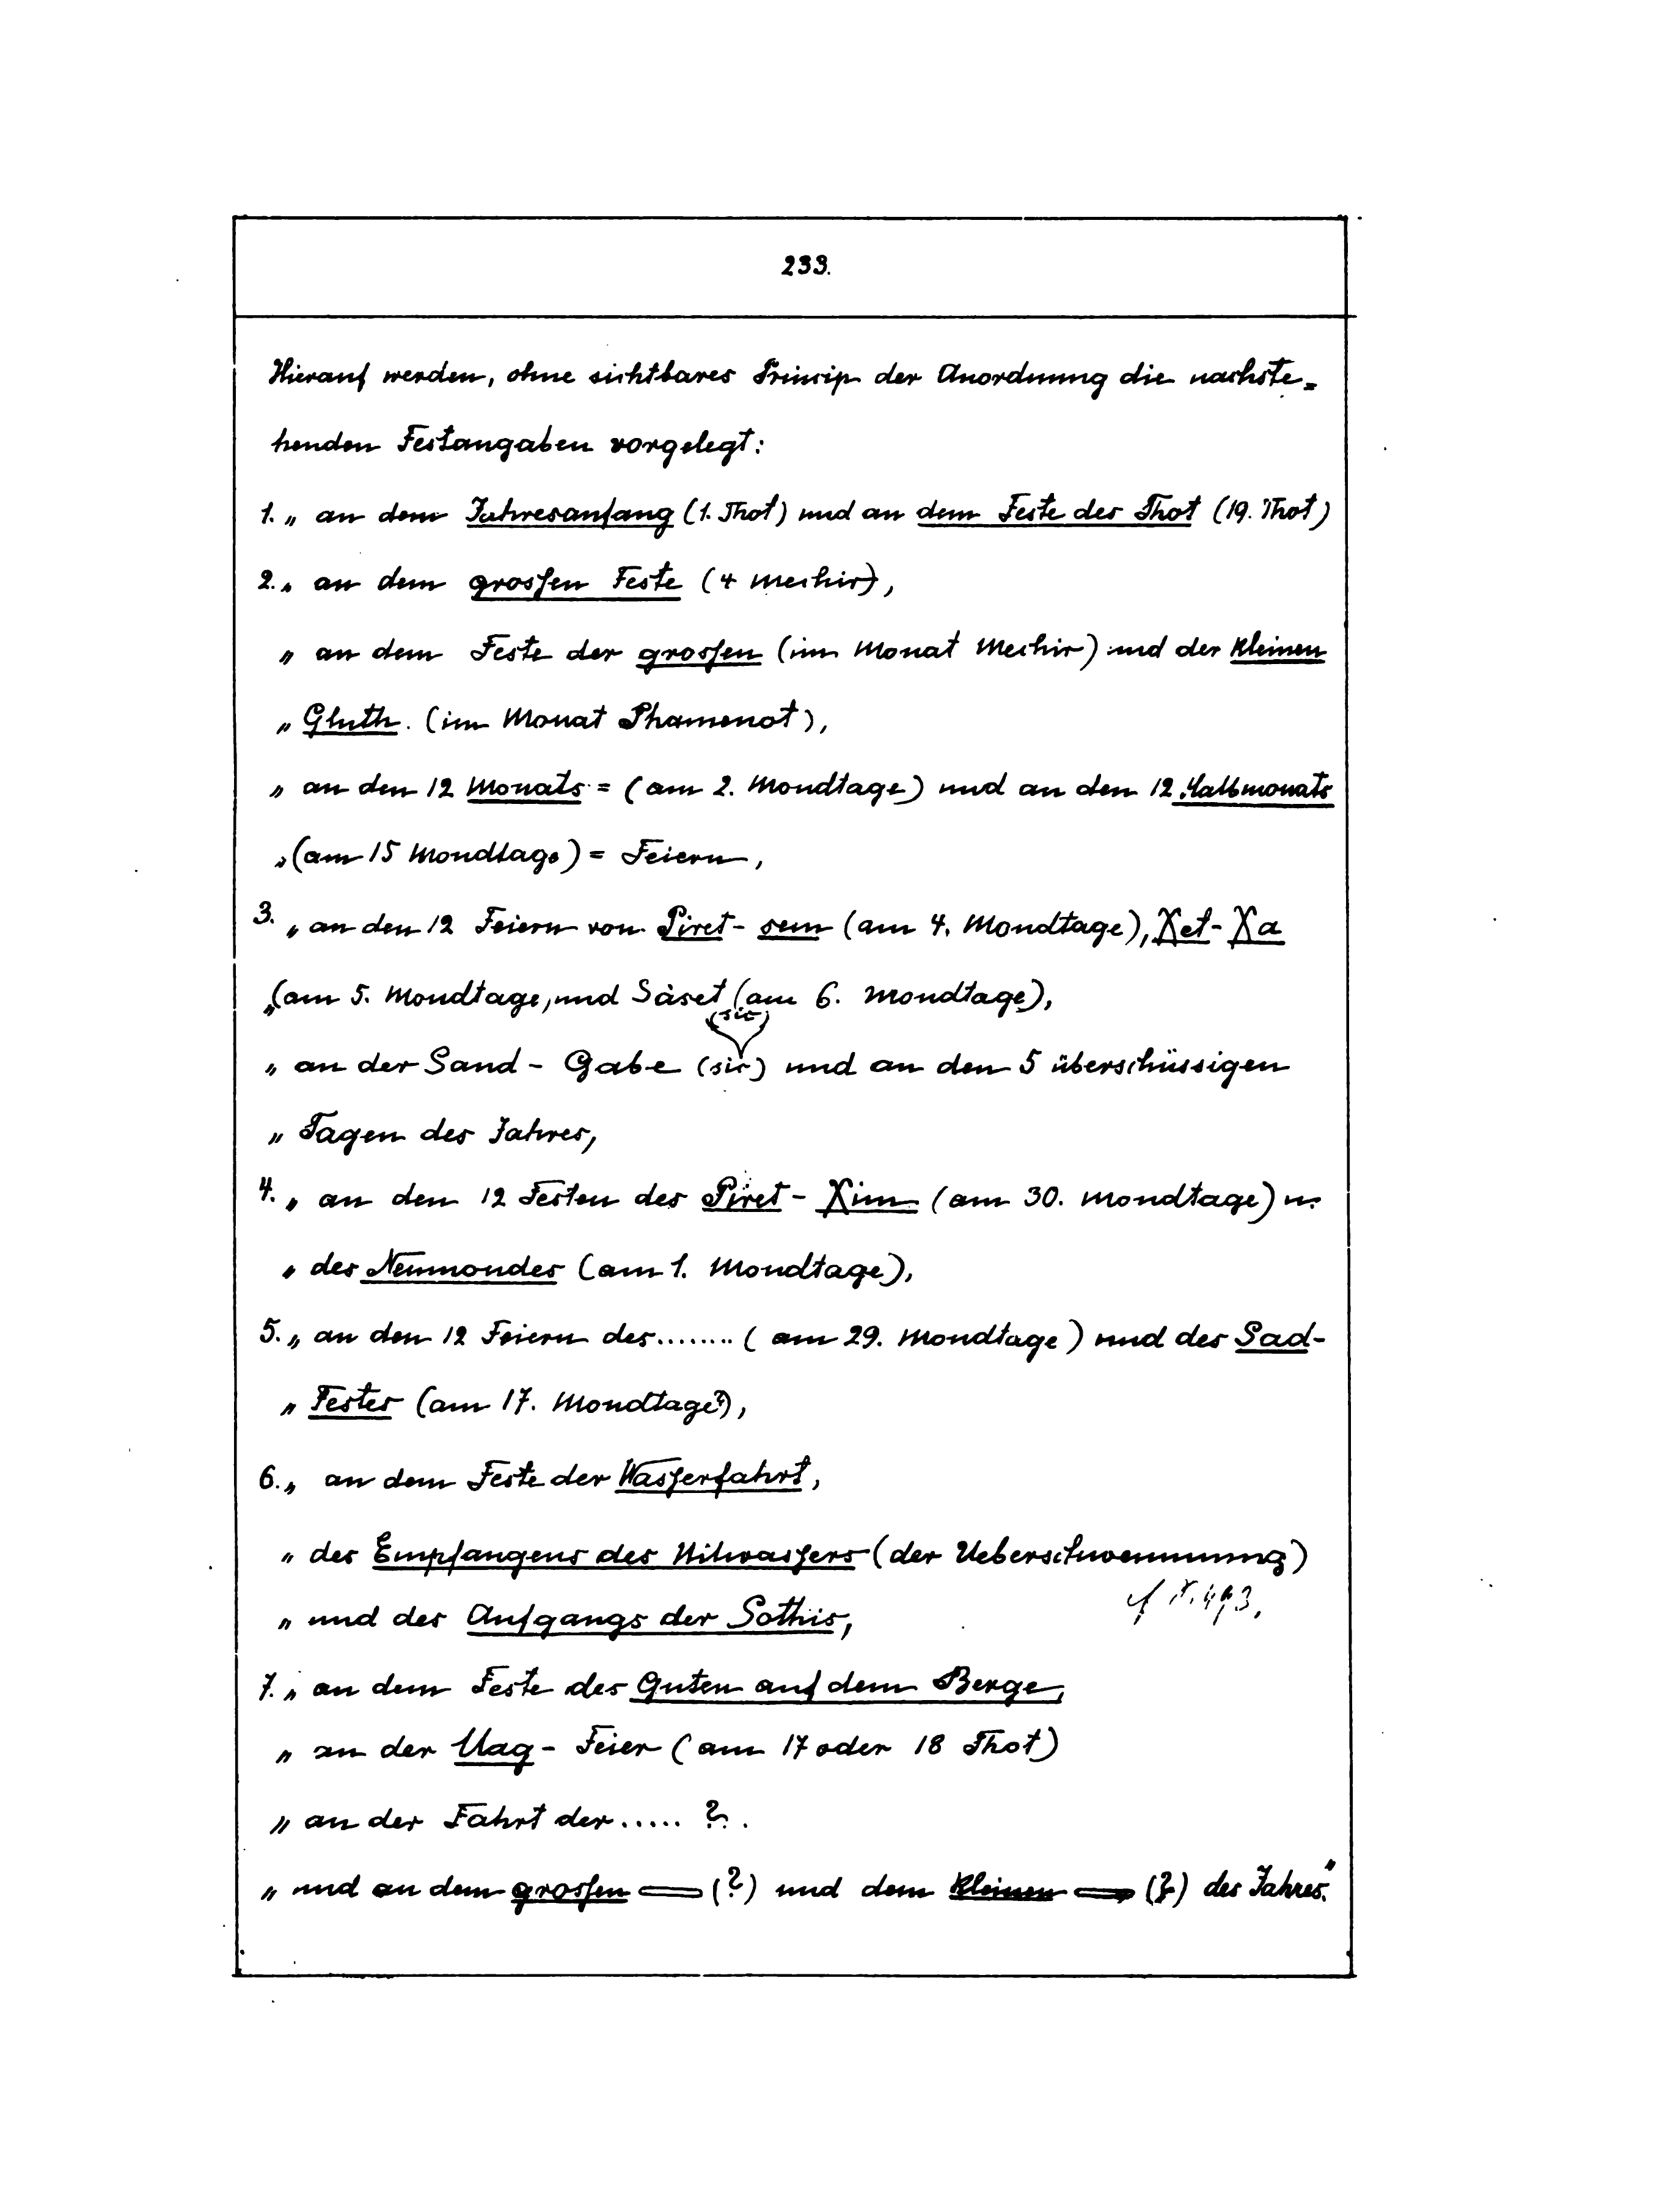 233.
Hierauf werden, ohne sichtbares Princip der Anordnung die nachste=
henden Festangaben vorgelegt:
1. „ an dem Jahresanfang (1. Thot) und an dem Feste des Thot (19. Thot)
2. „ an dem grossen Feste (4 Mechir),
„ an dem Feste der grossen (im Monat Mechir) und der kleinen
„ Gluth. (im Monat Phamenot),
„ an den 12 Monats = (am 2. Mondtage) und an den 12 Halbmonats
„ (am 15 Mondtage) = Feiern,
3. „ an den 12 Feiern von Piret - sem (am 4. Mondtage), Xet - Xa
„ (am 5. Mondtage, und Sàset (am 6. Mondtage),
(sic)
„ an der Sand - Gabe (sic) und an den 5 überschüssigen
„ Tagen des Jahres,
4. „ an den 12 Festen des Piret - Xim (am 30. Mondtage) u.
„ des Neumondes (am 1. Mondtage),
5. „ an den 12 Feiern des ........ ( am 29. Mondtage ) und des Sad-
„ Festes (am 17. Mondtage?),
6. „ an dem Feste der Wasserfahrt,
„ des Empfangens des Nilwassers (der Ueberschwemmung)
„ und des Aufgangs der Sothis,
7. „ an dem Feste des Guten auf dem Berge,
„ an der Uag - Feier ( am 17 oder 18 Thot)
„ an der Fahrt der ..... ? .
„ und an dem grossen (?) und dem kleinen (?) des Jahres."